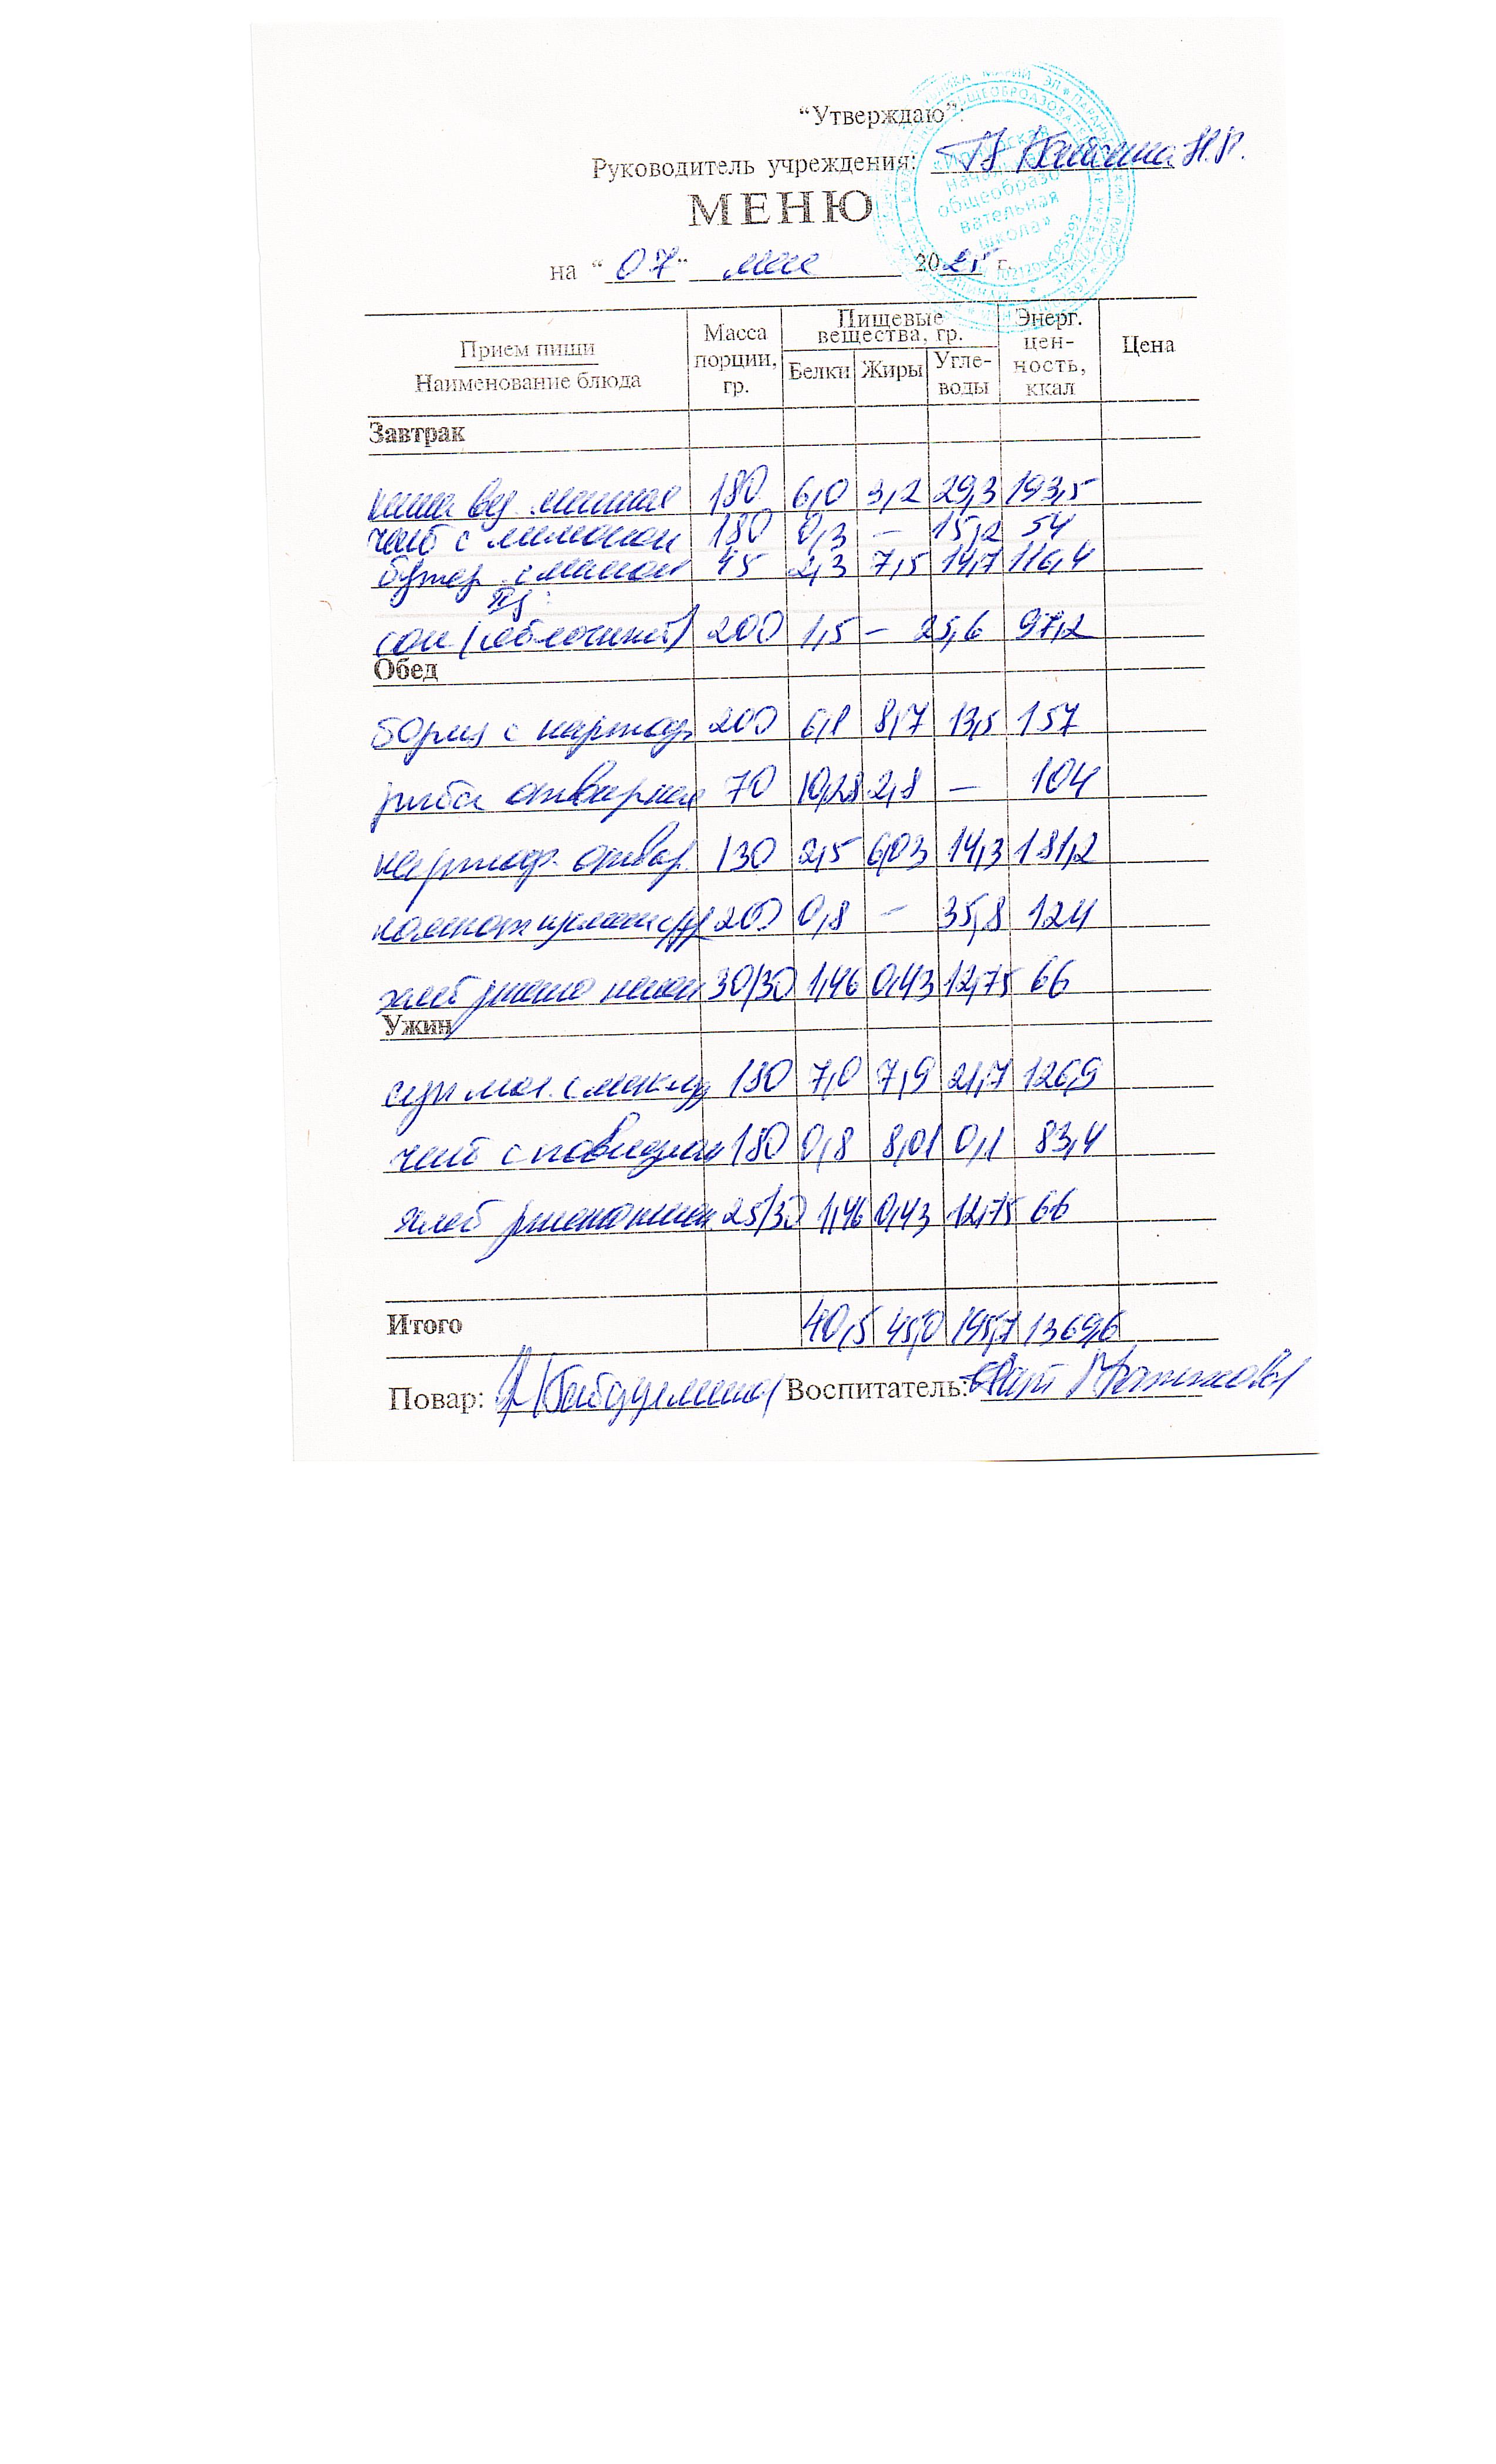 “Утверждаю”:
Руководитель учреждения:
МЕНЮ
на “07” мая 2025 г.
Прием пищи
Наименование блюда
Масса порции, гр.
Пищевые вещества, гр.
Белки Жиры Угле-
воды
Энерг. цен-
ность, ккал
Цена
Завтрак
каша вяз. манная 180 6,0 3,2 29,3 193,5
чай с лимоном 180 0,3 – 15,2 54
бутер. с маслом 45 2,3 7,5 14,7 116,4
сок (яблочный) 200 1,5 – 25,6 97,2
Обед
борщ с картоф 200 6,8 8,7 13,5 157
рыба отварная 70 10,28 2,8 – 104
картоф. отвар. 130 2,5 6,03 14,3 181,2
компот 200 0,8 – 35,8 124
хлеб ржано пшен 30/30 1,46 0,43 12,75 66
Ужин
суп мол. с макар 180 7,0 7,9 21,7 126,9
чай с повидлом 180 0,8 8,01 0,1 83,4
хлеб ржанопшен. 25/30 1,46 0,43 12,75 66
Итого 40,5 45,0 195,7 1369,6
Повар: Воспитатель:
общеобразо
вательная
школа»